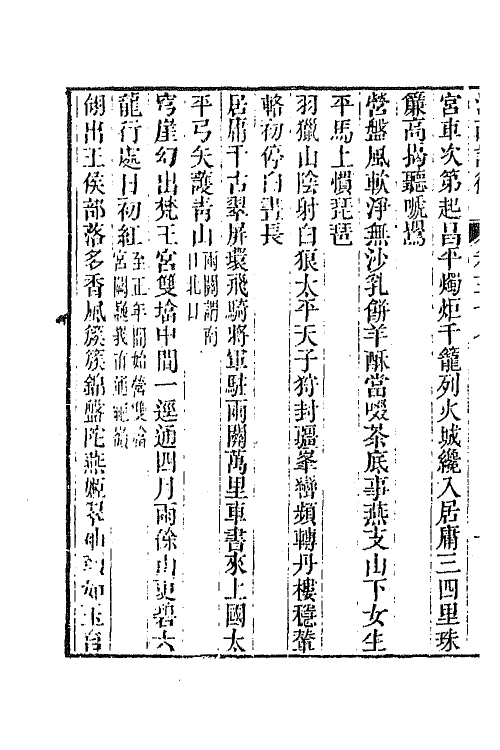 宮車次第起昌平燭炬千籠列火城纔入居庸三四里珠
簾高揭聽啼鶯
營盤風軟淨無沙乳餅羊酥當啜茶底事燕支山下女生
平馬上慣琵琶
羽獵山陰射白狼太平天子狩封疆峯巒頻轉丹樓穩輦
輅初停白晝長
居庸千古翠屏環飛騎將軍駐兩關萬里車書來上國太
平弓矢護青山兩關謂南
口北口
穹崖幻出梵王宮雙塔中間一逕通四月雨餘山更碧六
龍行處日初紅至正年間始營雙塔
宮闕
翎出王侯部落多香風簇簇錦盤陀燕姬翠袖顏如玉自